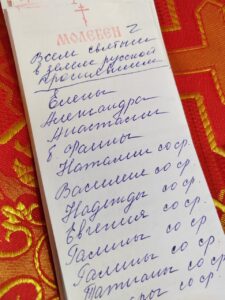 МОЛЕБЕН
Всем святым
в земле русской
просиявшим
Елены
Александра
Анастасии
Наталии со ср.
Василия со ср.
Надежды со ср.
Евгения со ср.
Галины со ср.
Галины со ср.
Татианы со ср.
со ср.